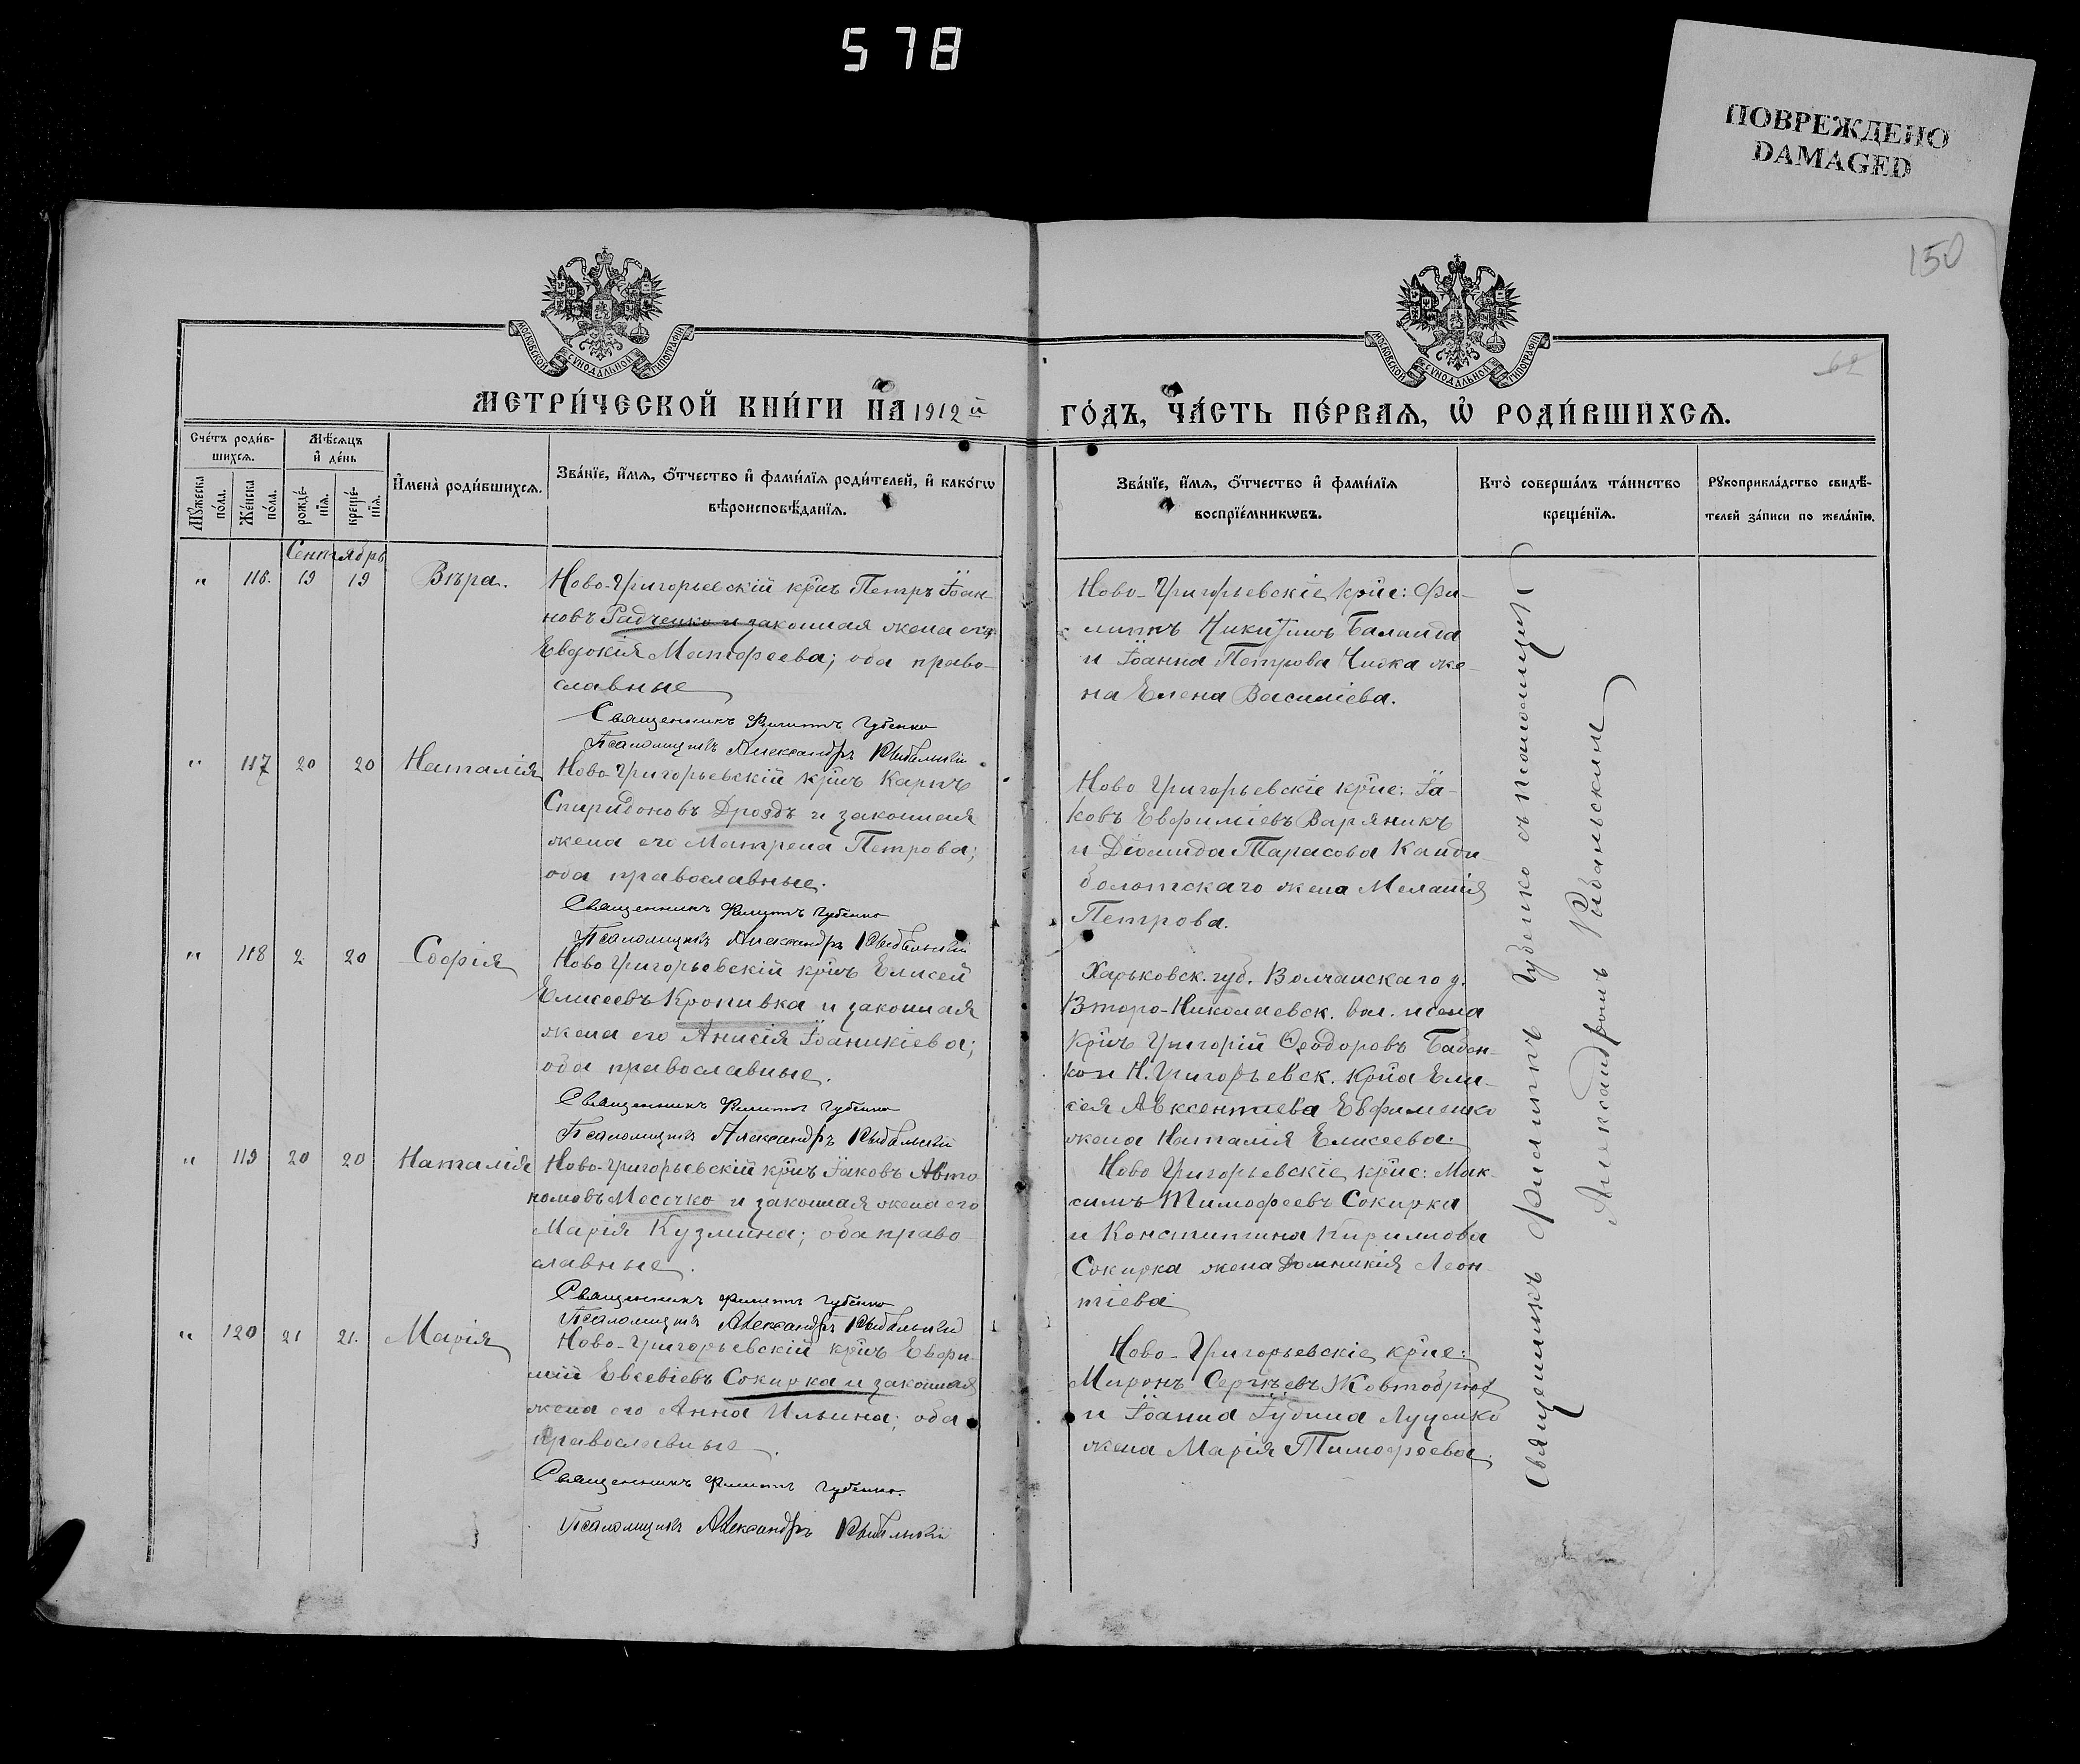 578
ПОВРЕЖДЕНО
DAMAGED
150
МОСКОВСКОЙ СУНОДАЛЬНОЙ ТИПОГРАФІИ
МОСКОВСКОЙ СУНОДАЛЬНОЙ ТИПОГРАФІИ
62
МЕТРИ́ЧЕСКОЙ КНИ́ГИ НА 1912й ГО́ДЪ, ЧА́СТЬ ПЕ́РВАѦ, Ѡ҆ РОДИ́ВШИХСѦ.
Сче́тъ роди́в-
шихсѧ.
Мѣ́сѧцъ
и҆ де́нь
Мꙋ́жеска
по́ла.
Же́нска
по́ла.
рожде́-
нїѧ.
креще́-
нїѧ.
И҆мена̀ роди́вшихсѧ.
Зва́нїе, и҆́мѧ, ѻ҆́тчество и҆ фами́лїѧ роди́телей, и҆ како́гѡ
вѣроисповѣ́данїѧ.
Зва́нїе, и҆́мѧ, ѻ҆́тчество и҆ фами́лїѧ
воспрїе́мникѡвъ.
Кто̀ соверша́лъ та́инство
креще́нїѧ.
Рꙋкоприкла́дство свидѣ́-
телей за́писи по жела́нїю.
Сентябрь
" 116. 19 19 Вѣра.
Ново-Григорьевскій крнъ Петръ Іоан-
новъ Радченко и законная жена его
Евдокія Матфеева; оба право-
славные
Священникъ Филиппъ Губенко
Псаломщикъ Александръ Рыбальскій
Ново-Григорьевскіе крне: Фи-
липпъ Никитинъ Баланда
и Іоанна Петрова Чижа же-
на Елена Василіева.
" 117 20 20 Наталія
Ново-Григорьевскій крнъ Карпъ
Спиридоновъ Дроздъ и законная
жена его Матрена Петрова;
оба православные.
Священникъ Филиппъ Губенко
Псаломщикъ Александръ Рыбальскій
Ново Григорьевскіе крне: Іа-
ковъ Евфиміевъ Варяникъ
и Діомида Тарасова Кайда-
болотскаго жена Меланія
Петрова.
" 118 2 20 Софія
Ново Григорьевскій крнъ Елисей
Елисеевъ Кропивка и законная
жена его Анисія Іоаникіева;
оба православные.
Священникъ Филиппъ Губенко
Псаломщикъ Александръ Рыбальскій
Харьковск. губ. Волчанскаго у.
Второ-Николаевск. вол. и села
крнъ Григорій Ѳеодоровъ Бабен-
ко и Н. Григорьевск. крна Ели-
сея Авксентіева Евфименко
жена Наталія Елисеева.
" 119 20 20 Наталія
Ново-Григорьевскій крнъ Іаковъ Авто-
номовъ Месечко и законная жена его
Марія Кузмина; оба право-
славные.
Священникъ Филиппъ Губенко
Псаломщикъ Александръ Рыбальскій
Ново Григорьевскіе крне: Мак-
симъ Тимофеевъ Сокирка
и Константина Кириллова
Сокирка жена Домникія Леон-
тіева
" 120 21 21. Марія
Ново-Григорьевскій крнъ Евфи-
мій Евсевіевъ Сокирка и законная
жена его Анна Ильина; оба
православные.
Священникъ Филиппъ Губенко.
Псаломщикъ Александръ Рыбальскій
Ново-Григорьевскіе крне:
Миронъ Сергѣевъ Жовтобрюх
и Іоанна Іудина Луценко
жена Марія Тимофеева.
Священникъ Филиппъ Губенко съ псаломщик
Александромъ Рыбальскимъ